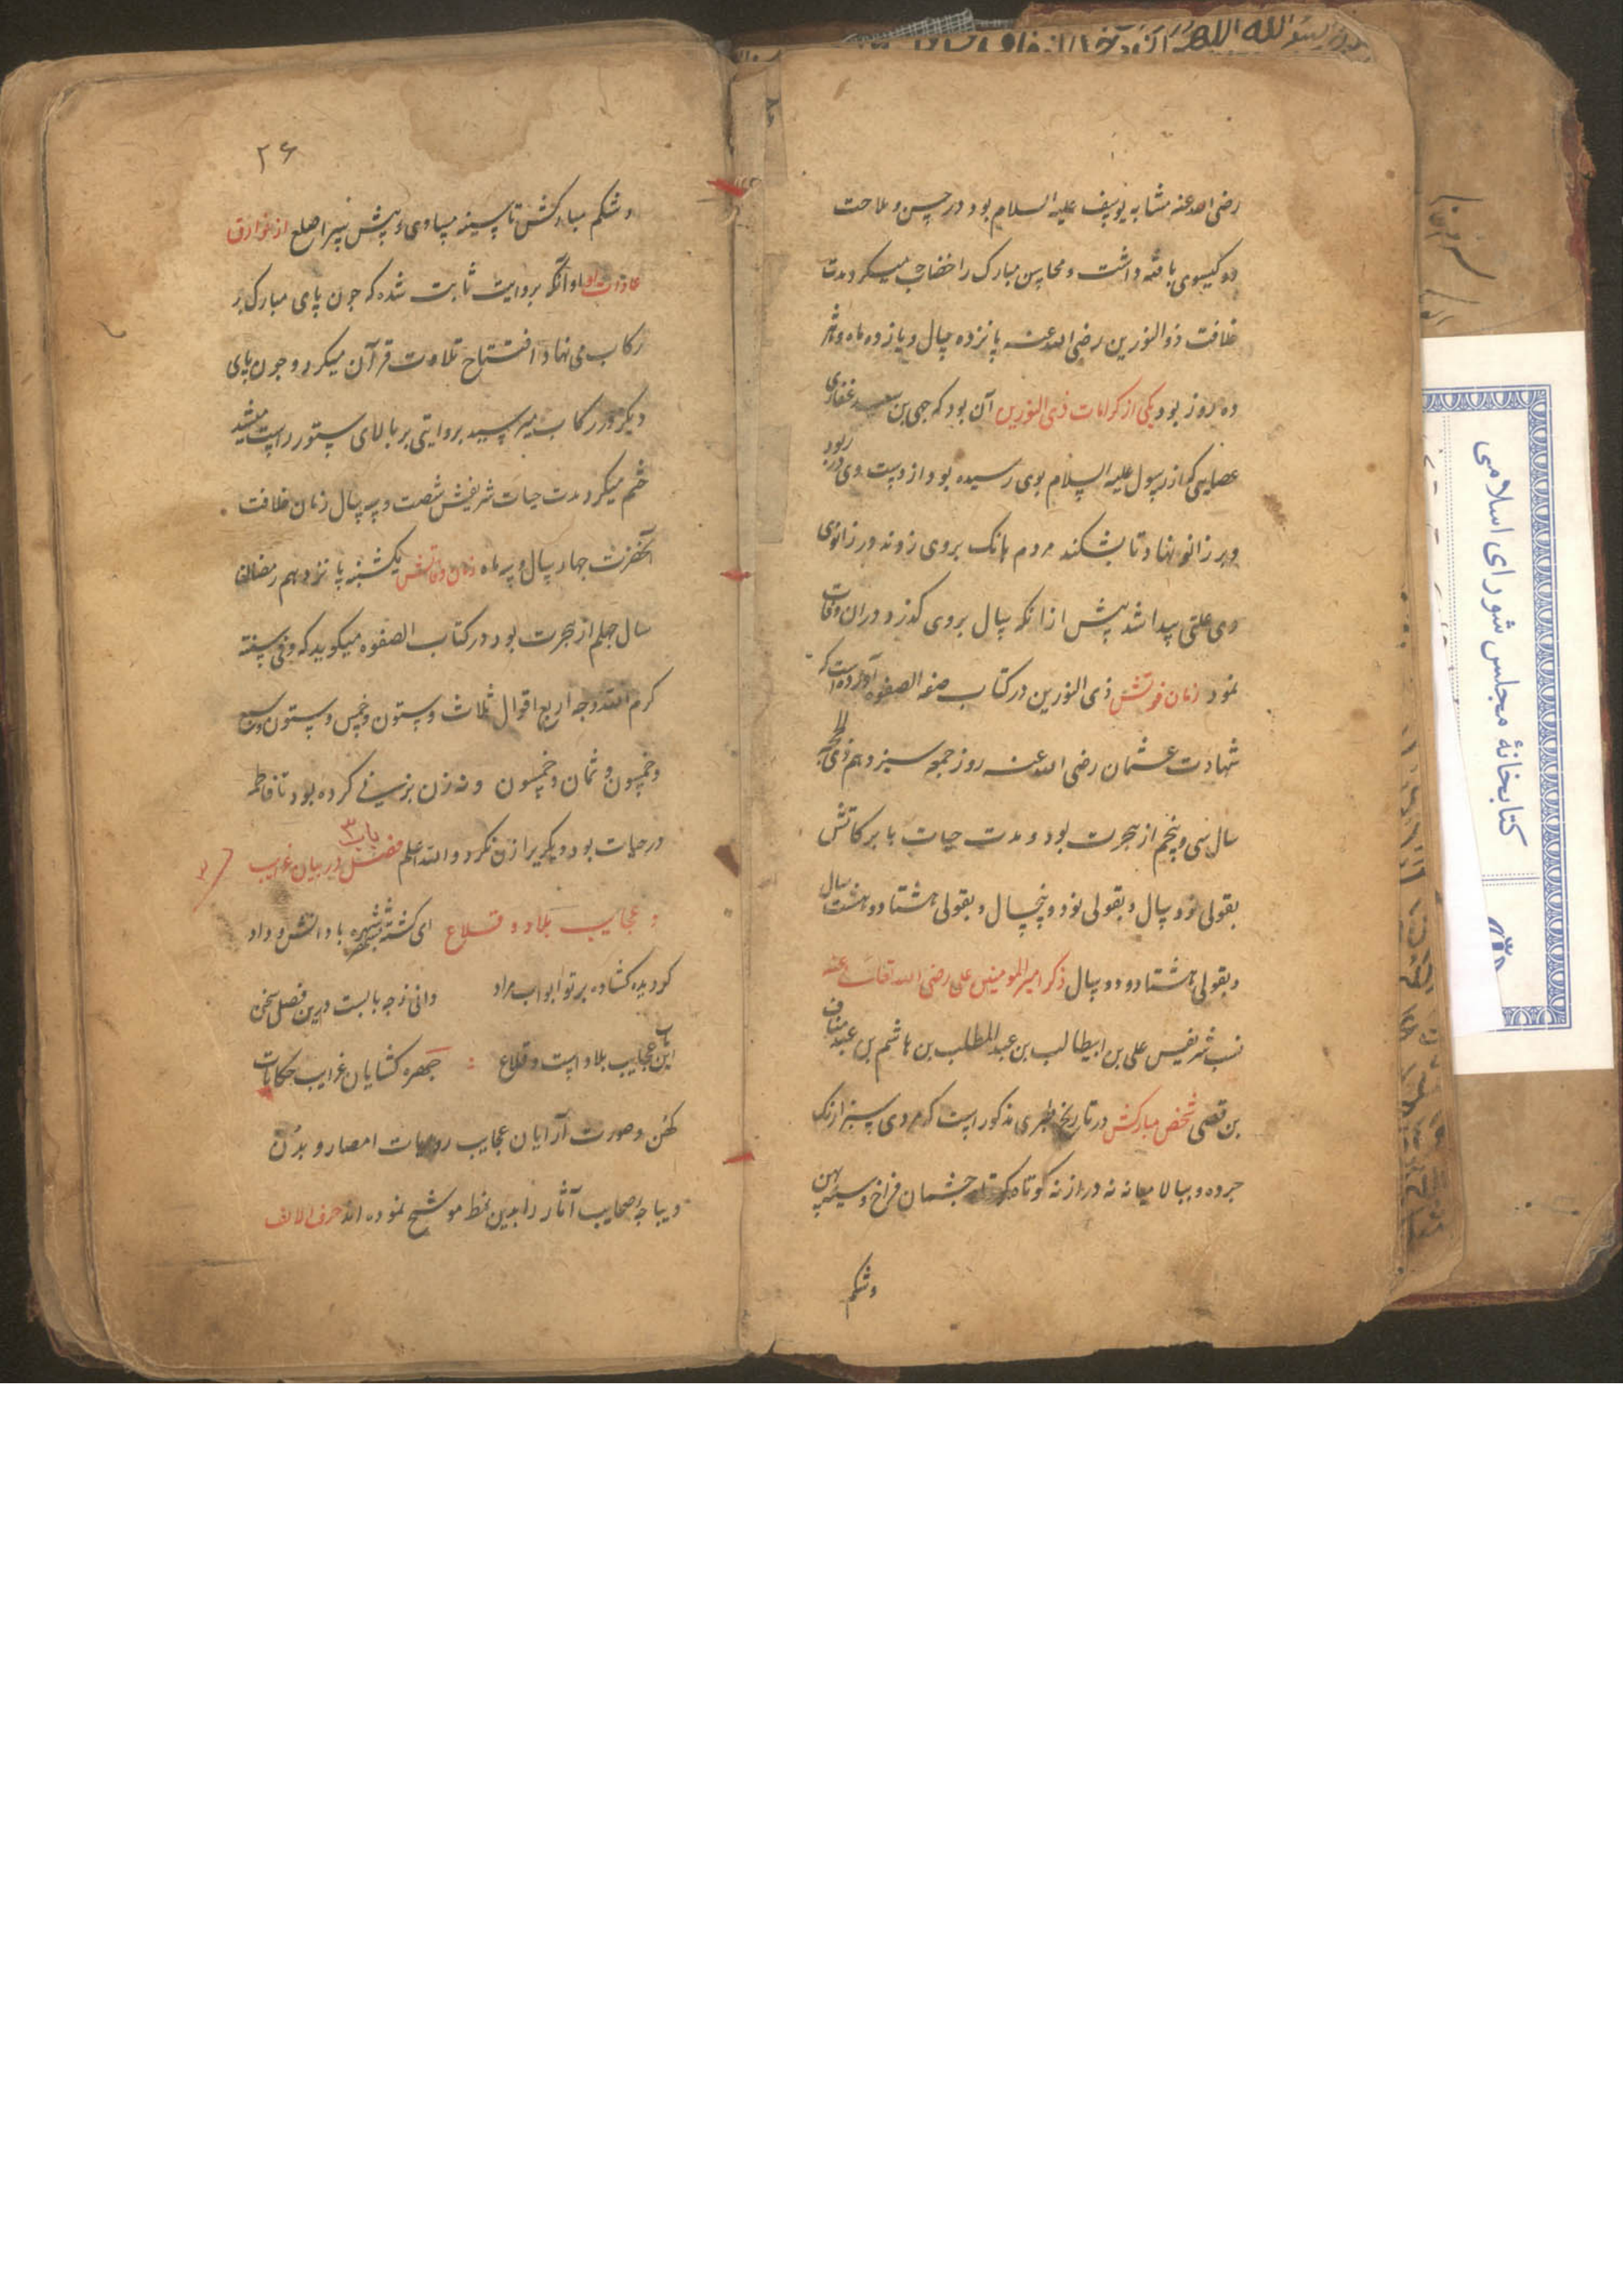 رضی الله عنه مشابه یوسف علیه السلام بود در حسن و ملاحت
دو کیسوی بافته داشت و محاسن مبارک را خضاب میکرد مدت
خلافت ذوالنورین رضی الله عنه پانزده سال و یازده ماه و
ده روز بود یکی از کرامات ذی النورین آن بود که جی بن سعید غفاری
عصایی که از رسول علیه السلام بوی رسیده بود از دست وی در ربود
وبر زانو نهاد تا بشکند مردم بانک بروی زدند در زانوی
وی علتی پیدا شد پیش از انکه سال بروی کذرد دران وفات
نمود زمان فوتش ذی النورین در کتاب صفه الصفوه آورده است که
شهادت عثمان رضی الله عنه روز جمعه سیزدهم ذی الحجه
سال سی و پنجم از هجرت بود و مدت حیات با برکاتش
بقولی نود سال و بقولی نود و پنجسال و بقولی هشتاد و هشت سال
وبقولی هشتاد و دو سال ذکر امیر المومنین علی رضی الله تعالی عنه
نسب شریفس علی بن ابیطالب بن عبد المطلب بن هاشم بن عبد مناف
بن قصی شخص مبارکش در تاریخ طبری مذکور است که مردی سبزارنک
چرده و ببالا میانه نه دراز نه کوتاه چشمان فراخ و سینه پهن
وشکم
۲۶
وشکم مبارکش تا سینه مساوی و پیش سر اصلع از خوارق
عادات او آنکه بروایت ثابت شده که چون پای مبارک بر
رکاب می نهاد افتتاح تلاوت قرآن میکرد و چون پای
دیکر در رکاب میرسید بروایتی بر بالای ستور راست میشد
ختم میکرد مدت حیات شریفش شصت و سه سال زمان خلافت
آنحضرت چهار سال و سه ماه زمان وفاتش یکشنبه پانزدهم رمضان
سال چهلم از هجرت بود در کتاب الصفوه میکوید که و فی سنته
کرم الله وجه اربع اقوال ثلاث و ستون و خمس و ستون و سبع
و خمسون و ثمان و خمسون و نه زن بزنی کرده بود تا فاطمه
در حیات بود دیکریرا زن نکرد والله اعلم فصل در بیان غرایب
باب ۳
و عجایب بلاد و قلاع ای کشته شهره با دانش و داد
کردیده کشاده بر تو ابواب مراد دانی ز چه بابست درین فصل سخن
این باب عجایب بلاد است و قلاع چهره کشایان غرایب حکایات
کهن و صورت آرایان عجایب روایات امصار و مدن
دیباجه صحایف آثار را بدین نمط موشح نموده اند حرف الالف
کتابخانهٔ مجلس شورای اسلامی